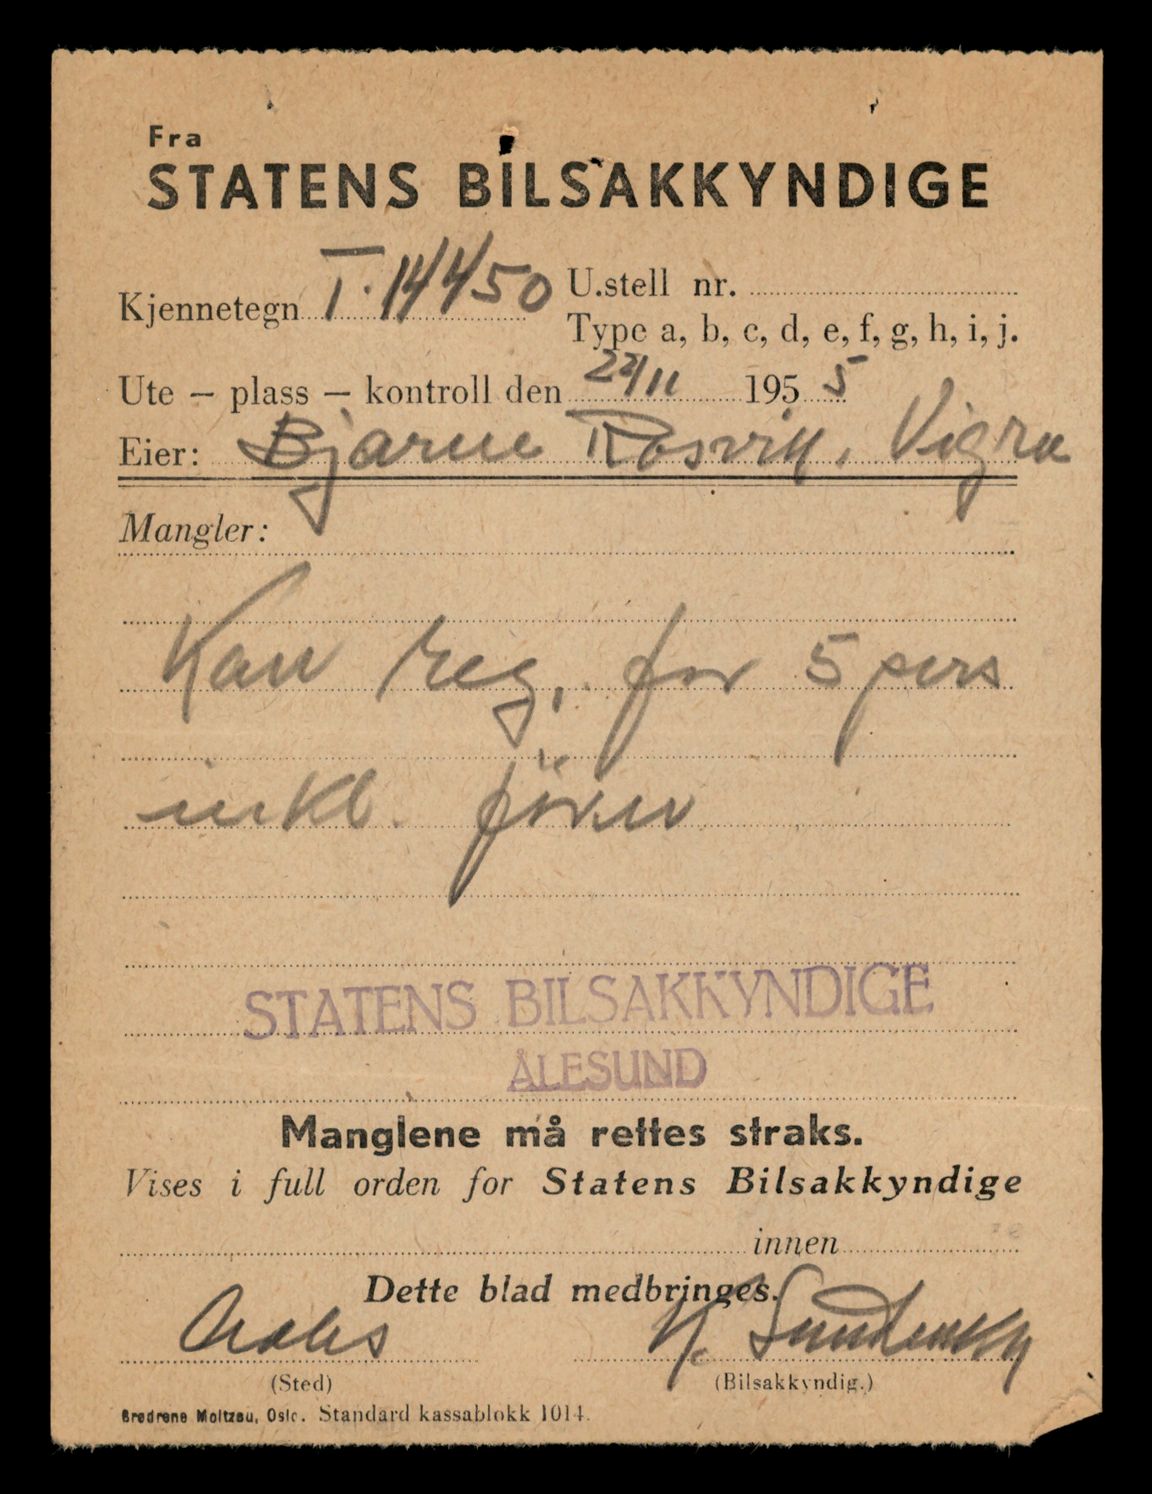 Fra
STATENS BILSAKKYNDIGE
Kjennetegn T. 14450
U.stell nr.
Type a, b, c, d, e, f, g, h, i, j.
Ute – plass – kontroll den 22/11 1955
Eier: Bjarne Rosvik, Vigra
Mangler:
Kan reg. for 5 pers
inkl. fører
STATENS BILSAKKYNDIGE
ÅLESUND
Manglene må rettes straks.
Vises i full orden for Statens Bilsakkyndige
innen
Dette blad medbringes.
(Sted) (Bilsakkyndig.)
Brødrene Moltzau, Oslo. Standard kassablokk 1014.